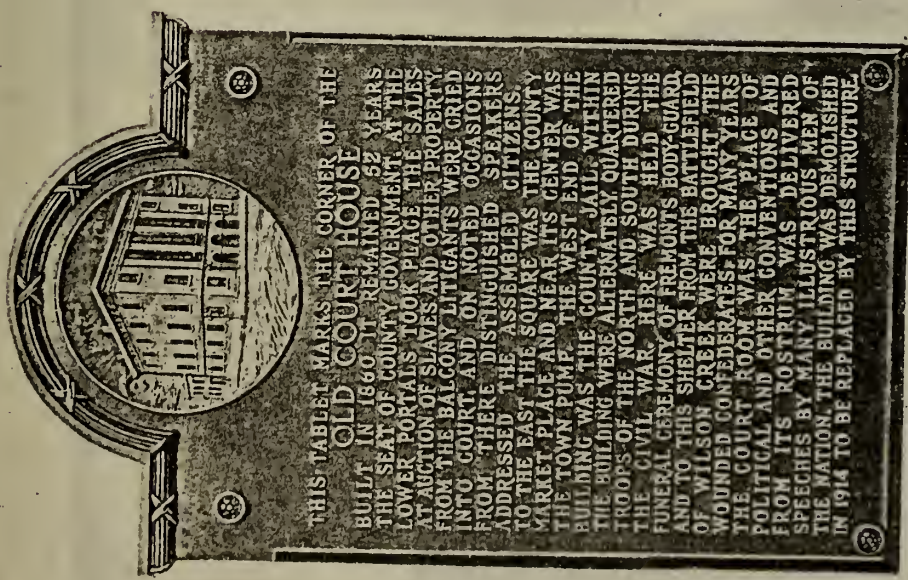 THIS TABLET MARKS THE CORNER OF THE
OLD COURT HOUSE
BUILT IN 1860 IT REMAINED 52 YEARS
THE SEAT OF COUNTY GOVERNMENT. AT THE
LOWER PORTALS TOOK PLACE THE SALES
AT AUCTION OF SLAVES AND OTHER PROPERTY.
FROM THE BALCONY LITIGANTS WERE CRIED
INTO COURT, AND ON NOTED OCCASIONS
FROM THERE DISTINGUISHED SPEAKERS
ADDRESSED THE ASSEMBLED CITIZENS.
TO THE EAST THE SQUARE WAS THE COUNTY
MARKET PLACE AND NEAR ITS CENTER WAS
THE TOWN PUMP. THE WEST END OF THE
BUILDING WAS THE COUNTY JAIL. WITHIN
THE BUILDING WERE ALTERNATELY QUARTERED
TROOPS OF THE NORTH AND SOUTH DURING
THE CIVIL WAR. HERE WAS HELD THE
FUNERAL CEREMONY OF FREMONTS BODY-GUARD,
AND TO THIS SHELTER FROM THE BATTLEFIELD
OF WILSON CREEK WERE BROUGHT THE
WOUNDED CONFEDERATES. FOR MANY YEARS
THE COURT ROOM WAS THE PLACE OF
POLITICAL AND OTHER CONVENTIONS AND
FROM ITS ROSTRUM WAS DELIVERED
SPEECHES BY MANY ILLUSTRIOUS MEN OF
THE NATION. THE BUILDING WAS DEMOLISHED
IN 1914 TO BE REPLACED BY THIS STRUCTURE.